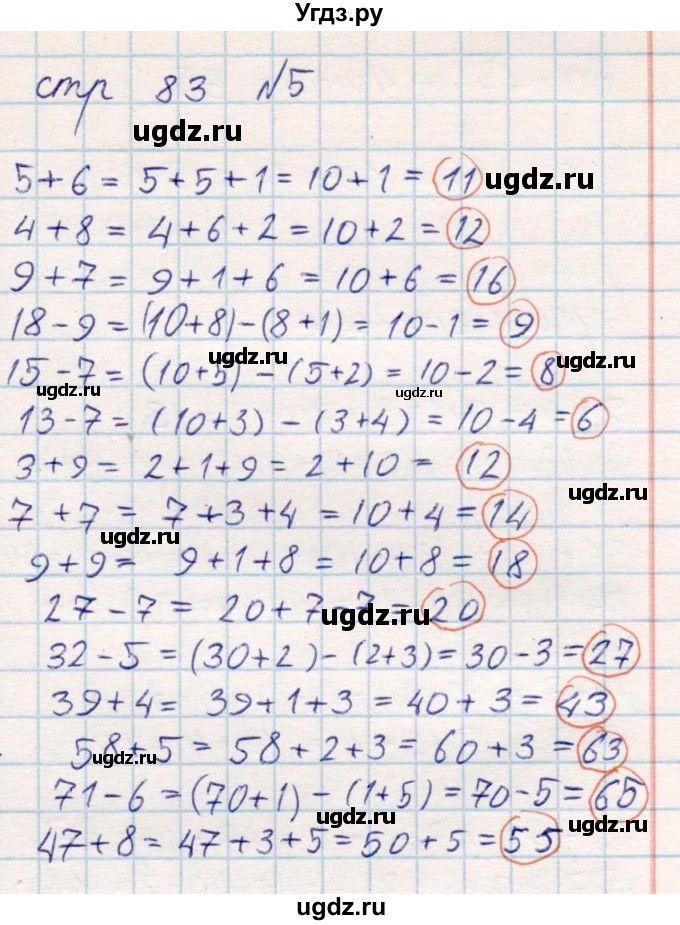 Угдз.ру
стр 83 №5
ugdz.ru
5+6 = 5+5+1 = 10+1 = 11 ugdz.ru
4+8 = 4+6+2 = 10+2 = 12
9+7 = 9+1+6 = 10+6 = 16
18-9 = (10+8)-(8+1) = 10-1 = 9
ugdz.ru
15-7 = (10+5) - (5+2) = 10-2 = 8
ugdz.ru ugdz.ru
13-7 = (10+3) - (3+4) = 10-4 = 6
3+9 = 2+1+9 = 2+10 = 12
ugdz.ru
7+7 = 7+3+4 = 10+4 = 14
ugdz.ru
9+9 = 9+1+8 = 10+8 = 18
27-7 = 20+7-7 = 20
ugdz.ru
32-5 = (30+2)-(2+3) = 30-3 = 27
39+4 = 39+1+3 = 40+3 = 43
58+5 = 58+2+3 = 60+3 = 63
ugdz.ru
71-6 = (70+1) - (1+5) = 70-5 = 65
ugdz.ru ugdz.ru
47+8 = 47+3+5 = 50+5 = 55
ugdz.ru